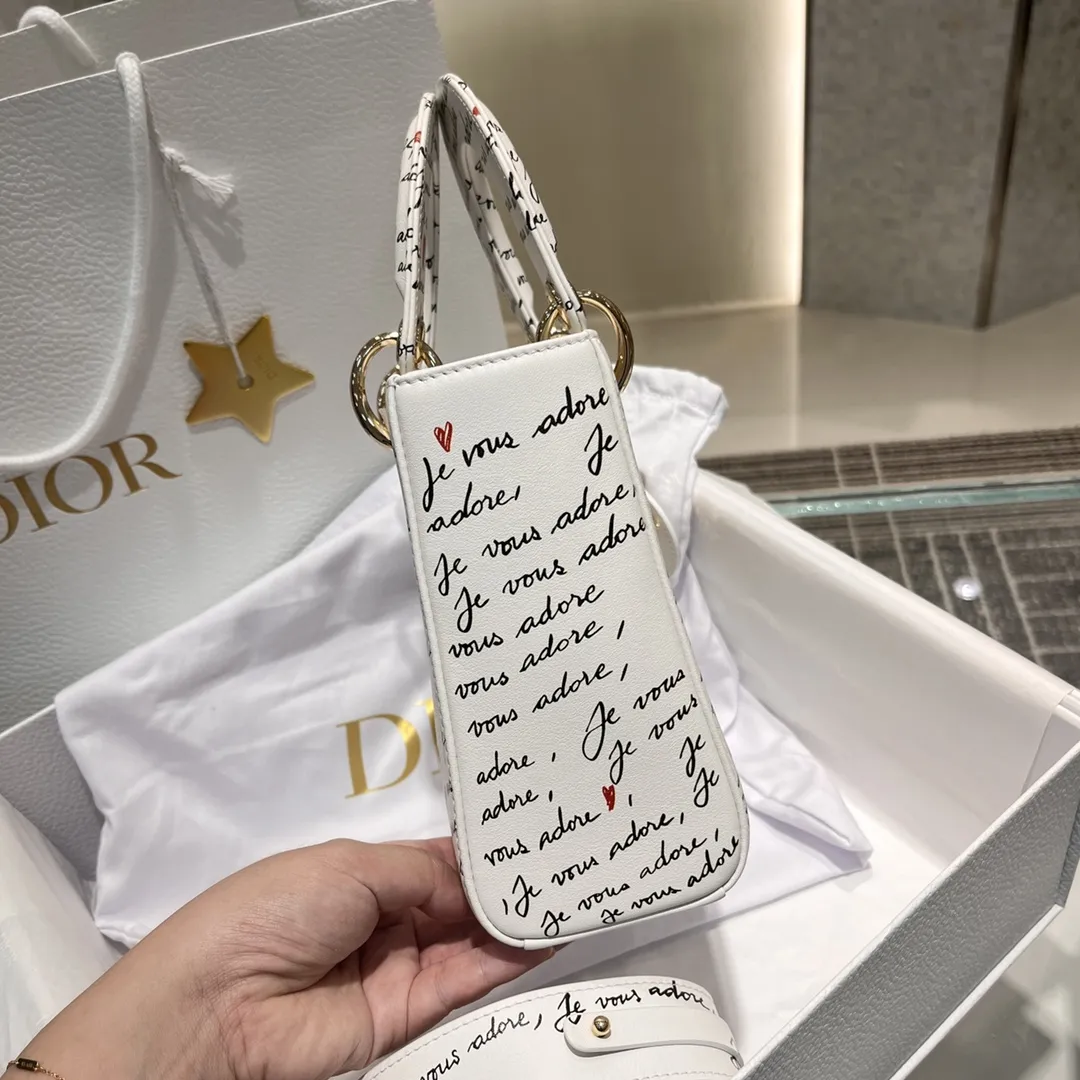 DIOR
Je vous adore
Je
adore,
Je vous adore,
Je vous adore
vous adore
vous adore,
vous adore,
Je vous
adore,
Je vous
adore,
Je
vous adore,
Je
Je vous adore,
Je vous adore,
Je vous adore
D
vous adore, Je vous adore